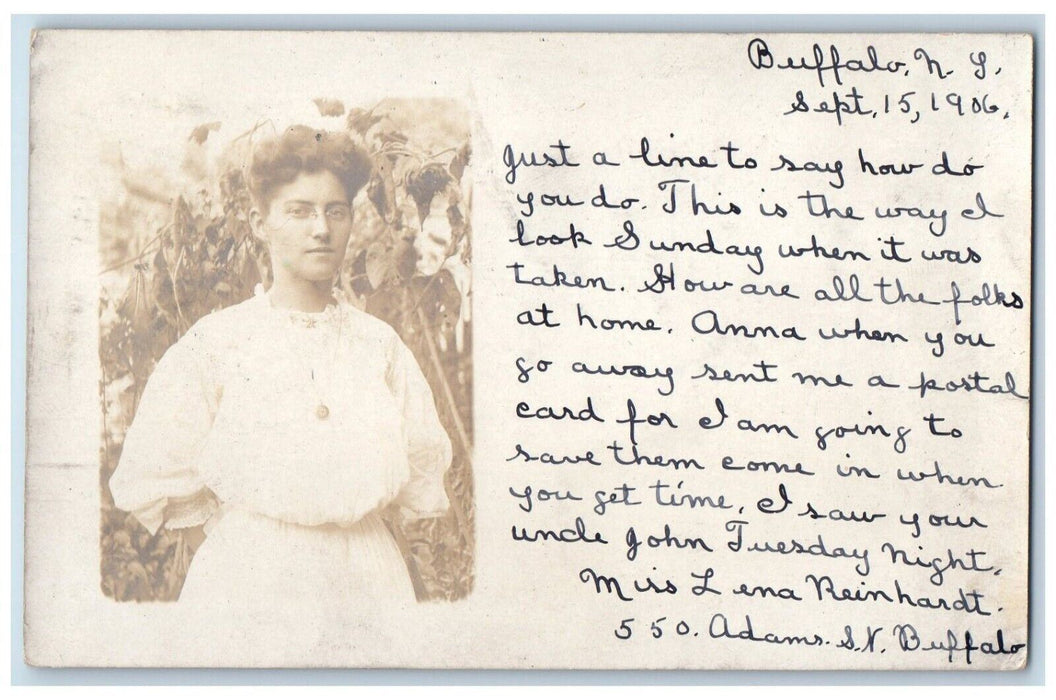 Buffalo, N. Y.
Sept, 15, 1906.
Just a line to say how do
you do. This is the way I
look Sunday when it was
taken. How are all the folks
at home. Anna when you
go away sent me a postal
card for I am going to
save them come in when
you get time. I saw your
uncle John Tuesday Night.
Miss Lena Reinhardt.
550. Adams. St. Buffalo